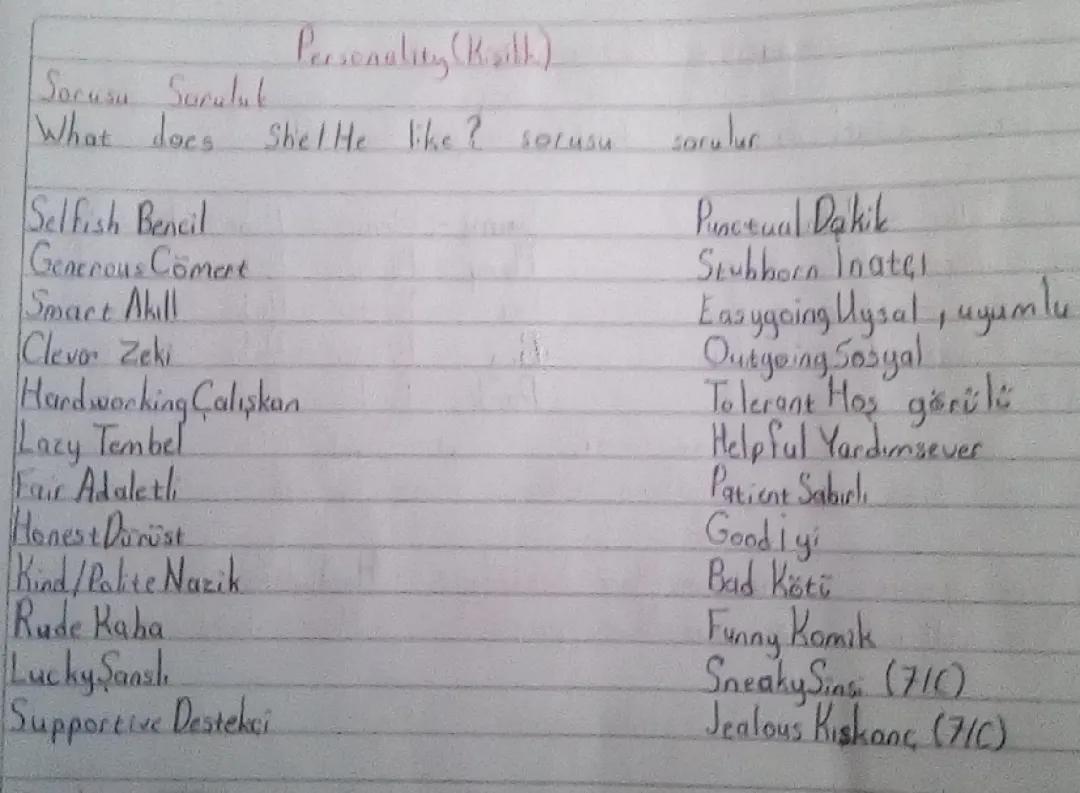 Personality (Kişilik)
Sorusu Sorulut
What does She/He like? sorusu sorulur
Selfish Bencil
Generous Cömert
Smart Akıll
Clever Zeki
Hardworking Çalışkan
Lazy Tembel
Fair Adaletli
Honest Dürüst
Kind/Polite Nazik
Rude Kaba
Lucky Şanslı
Supportive Destekci
Punctual Dakik
Stubborn Inatçı
Easygoing Uysal, uyumlu
Outgoing Sosyal
Tolerant Hoş görülü
Helpful Yardımsever
Patient Sabırlı
Good İyi
Bad Kötü
Funny Komik
Sneaky Sinsi (7/C)
Jealous Kıskanç (7/C)